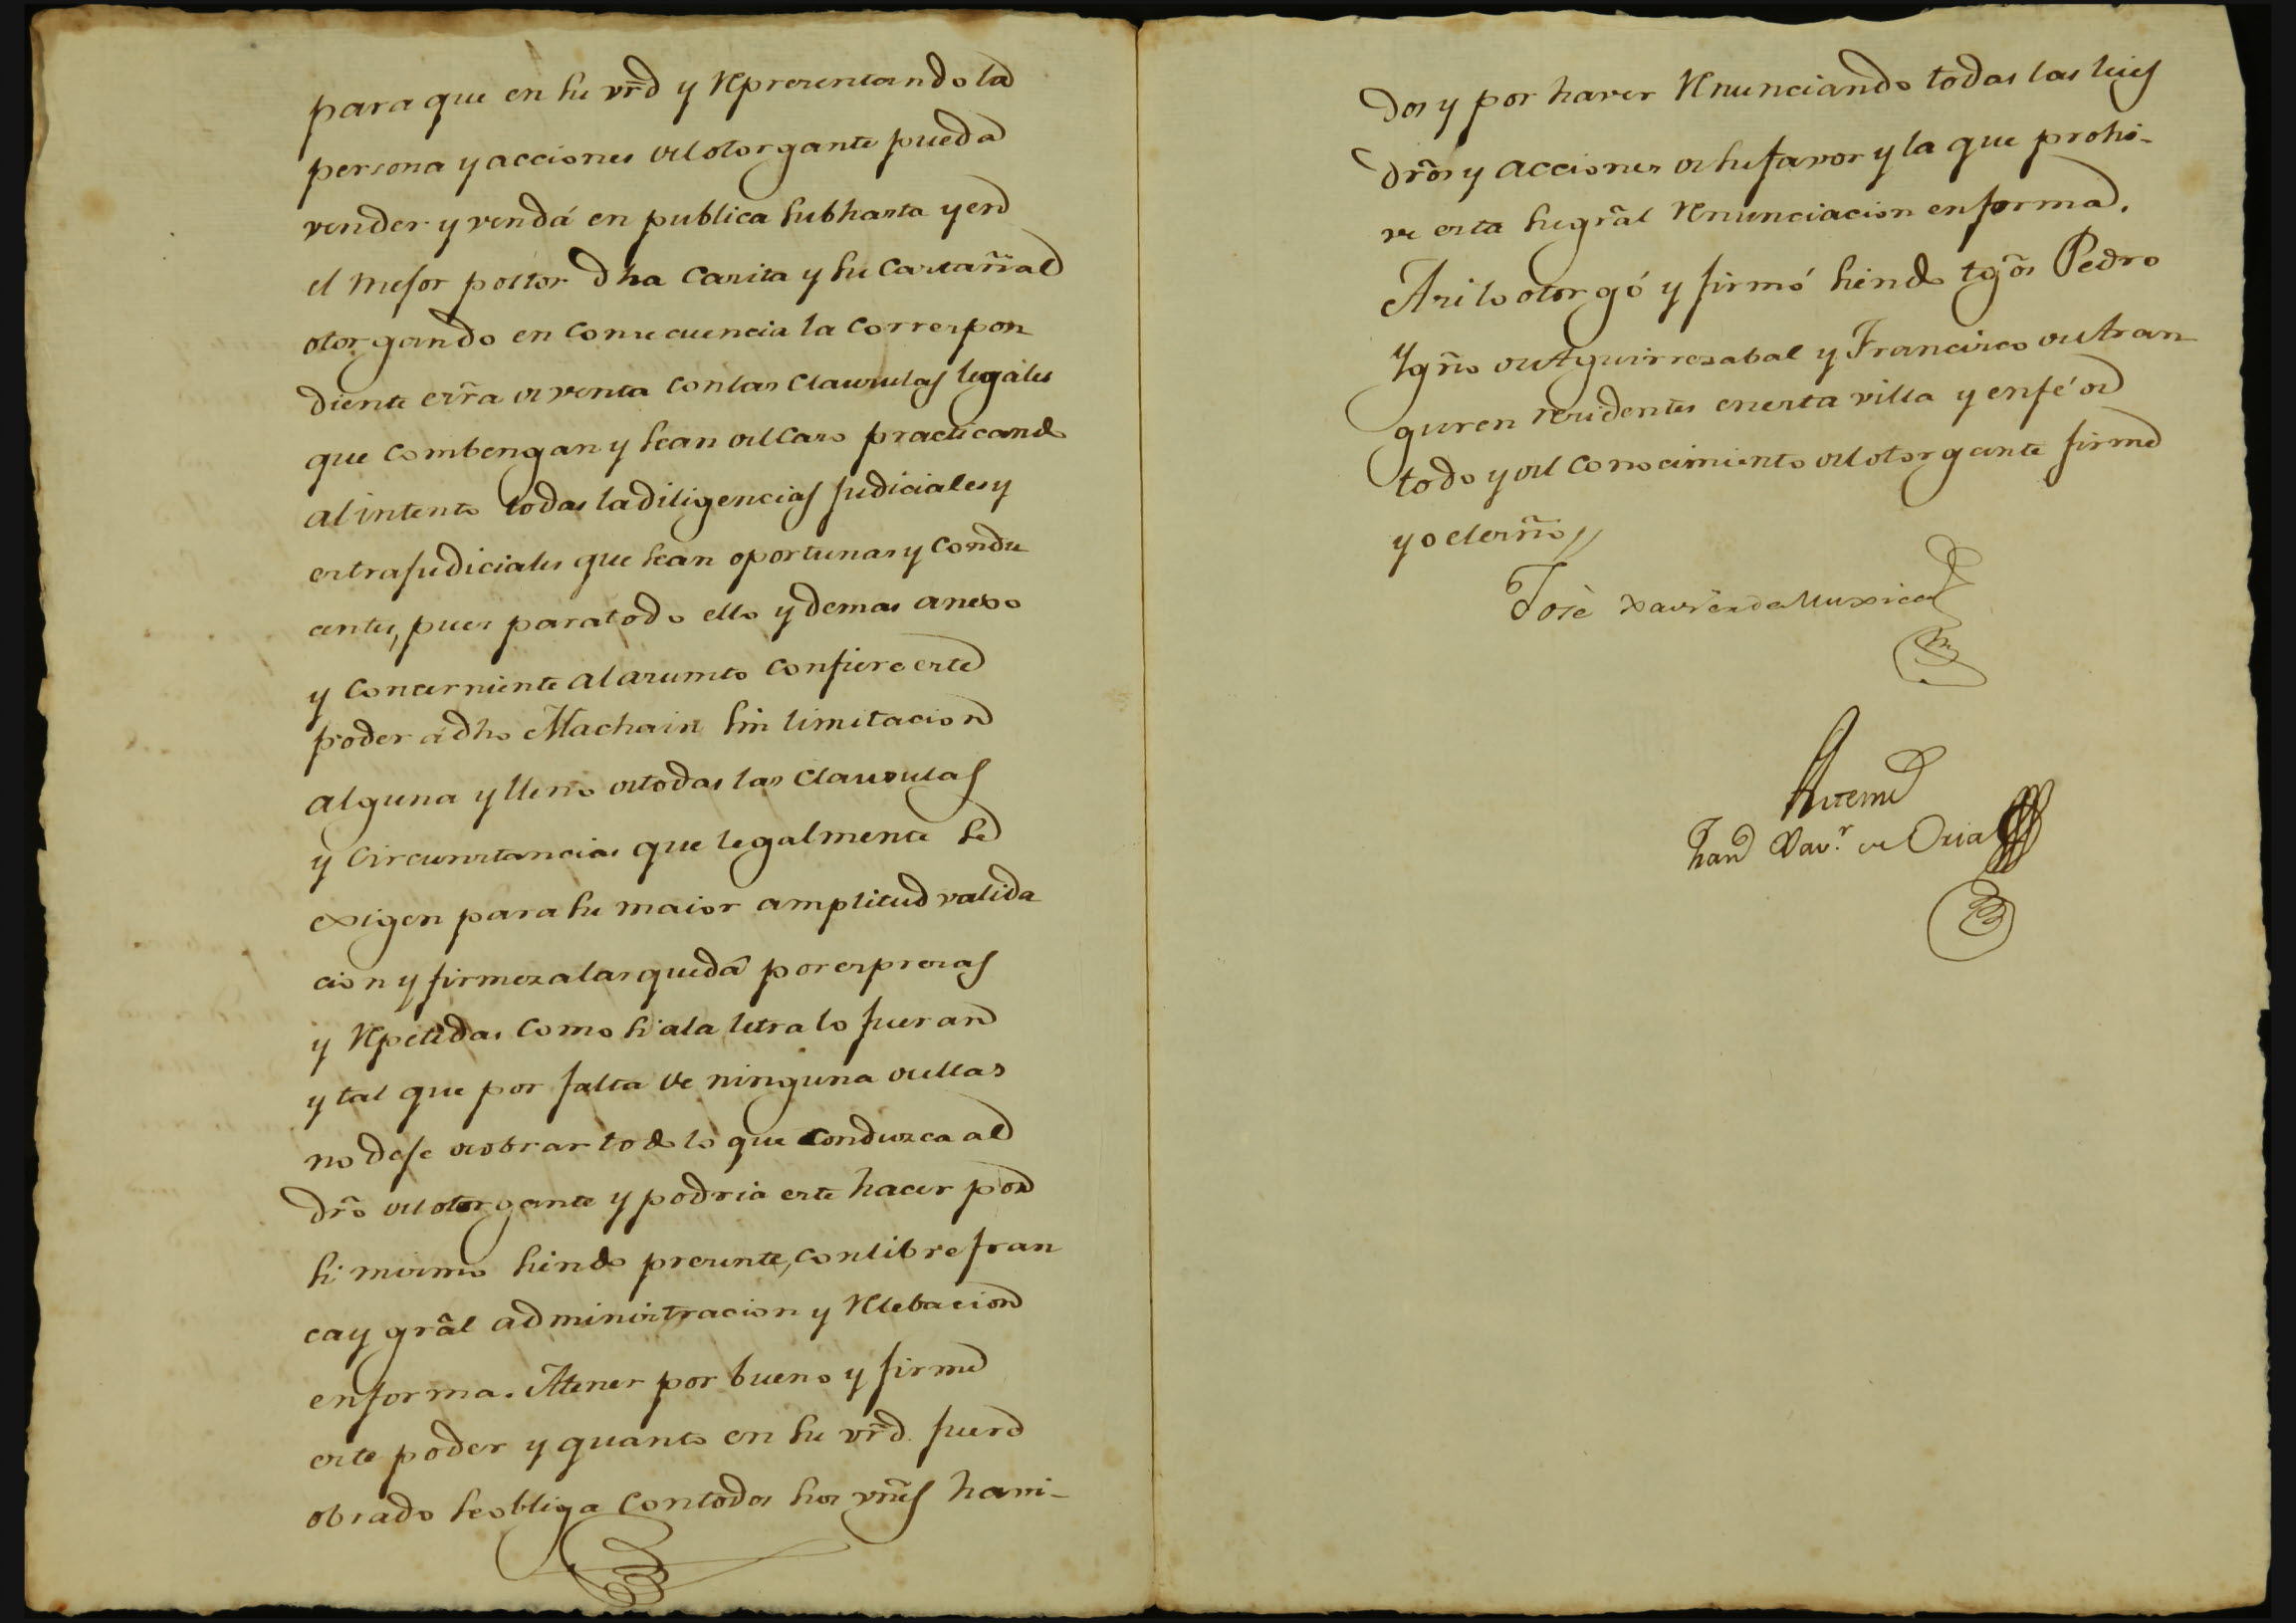 para que en su vrd y representando la
persona y acciones del otorgante pueda
vender y vendá en publica subhasta y en
el mejor postor dha Casita y su Castañal
otorgando en consecuencia la correspon
diente esrra de venta con las clausulas legales
que combengan y sean del caso practicando
al intento todas la diligencias judiciales y
extrajudiciales que sean oportunas y condu
centes, pues para todo ello y demas anexo
y concerniente al asumto confiere este
poder á dho Machain sin limitacion
alguna y lleno de todas las clausulas
y circunstancias que legalmente se
exigen para su maior amplitud valida
cion y firmeza las que dá por expresas
y repetidas como si a la letra lo fueran
y tal que por falta de ninguna de ellas
no deje de obrar todo lo que conduzca al
dro del otorgante y podria este hacer por
si mismo siendo presente, con libre fran
ca y gral administracion y relebacion
en forma. A tener por bueno y firme
este poder y quanto en su vrd. fuere
obrado se obliga con todos sus vnes havi-
dos y por haver renunciando todas las leies
dros y acciones de su favor y la que prohi-
ve esta su gral renunciacion en forma.
Asi lo otorgó y firmó siendo tgos Pedro
Ygno de Aguirrezabal y Francisco de Aran
guren residentes en esta villa y en fé de
todo y del conocimiento del otorgante firme
yo el esrno
José Xavier de Muxica
Ante mi
Xavr. de Oria